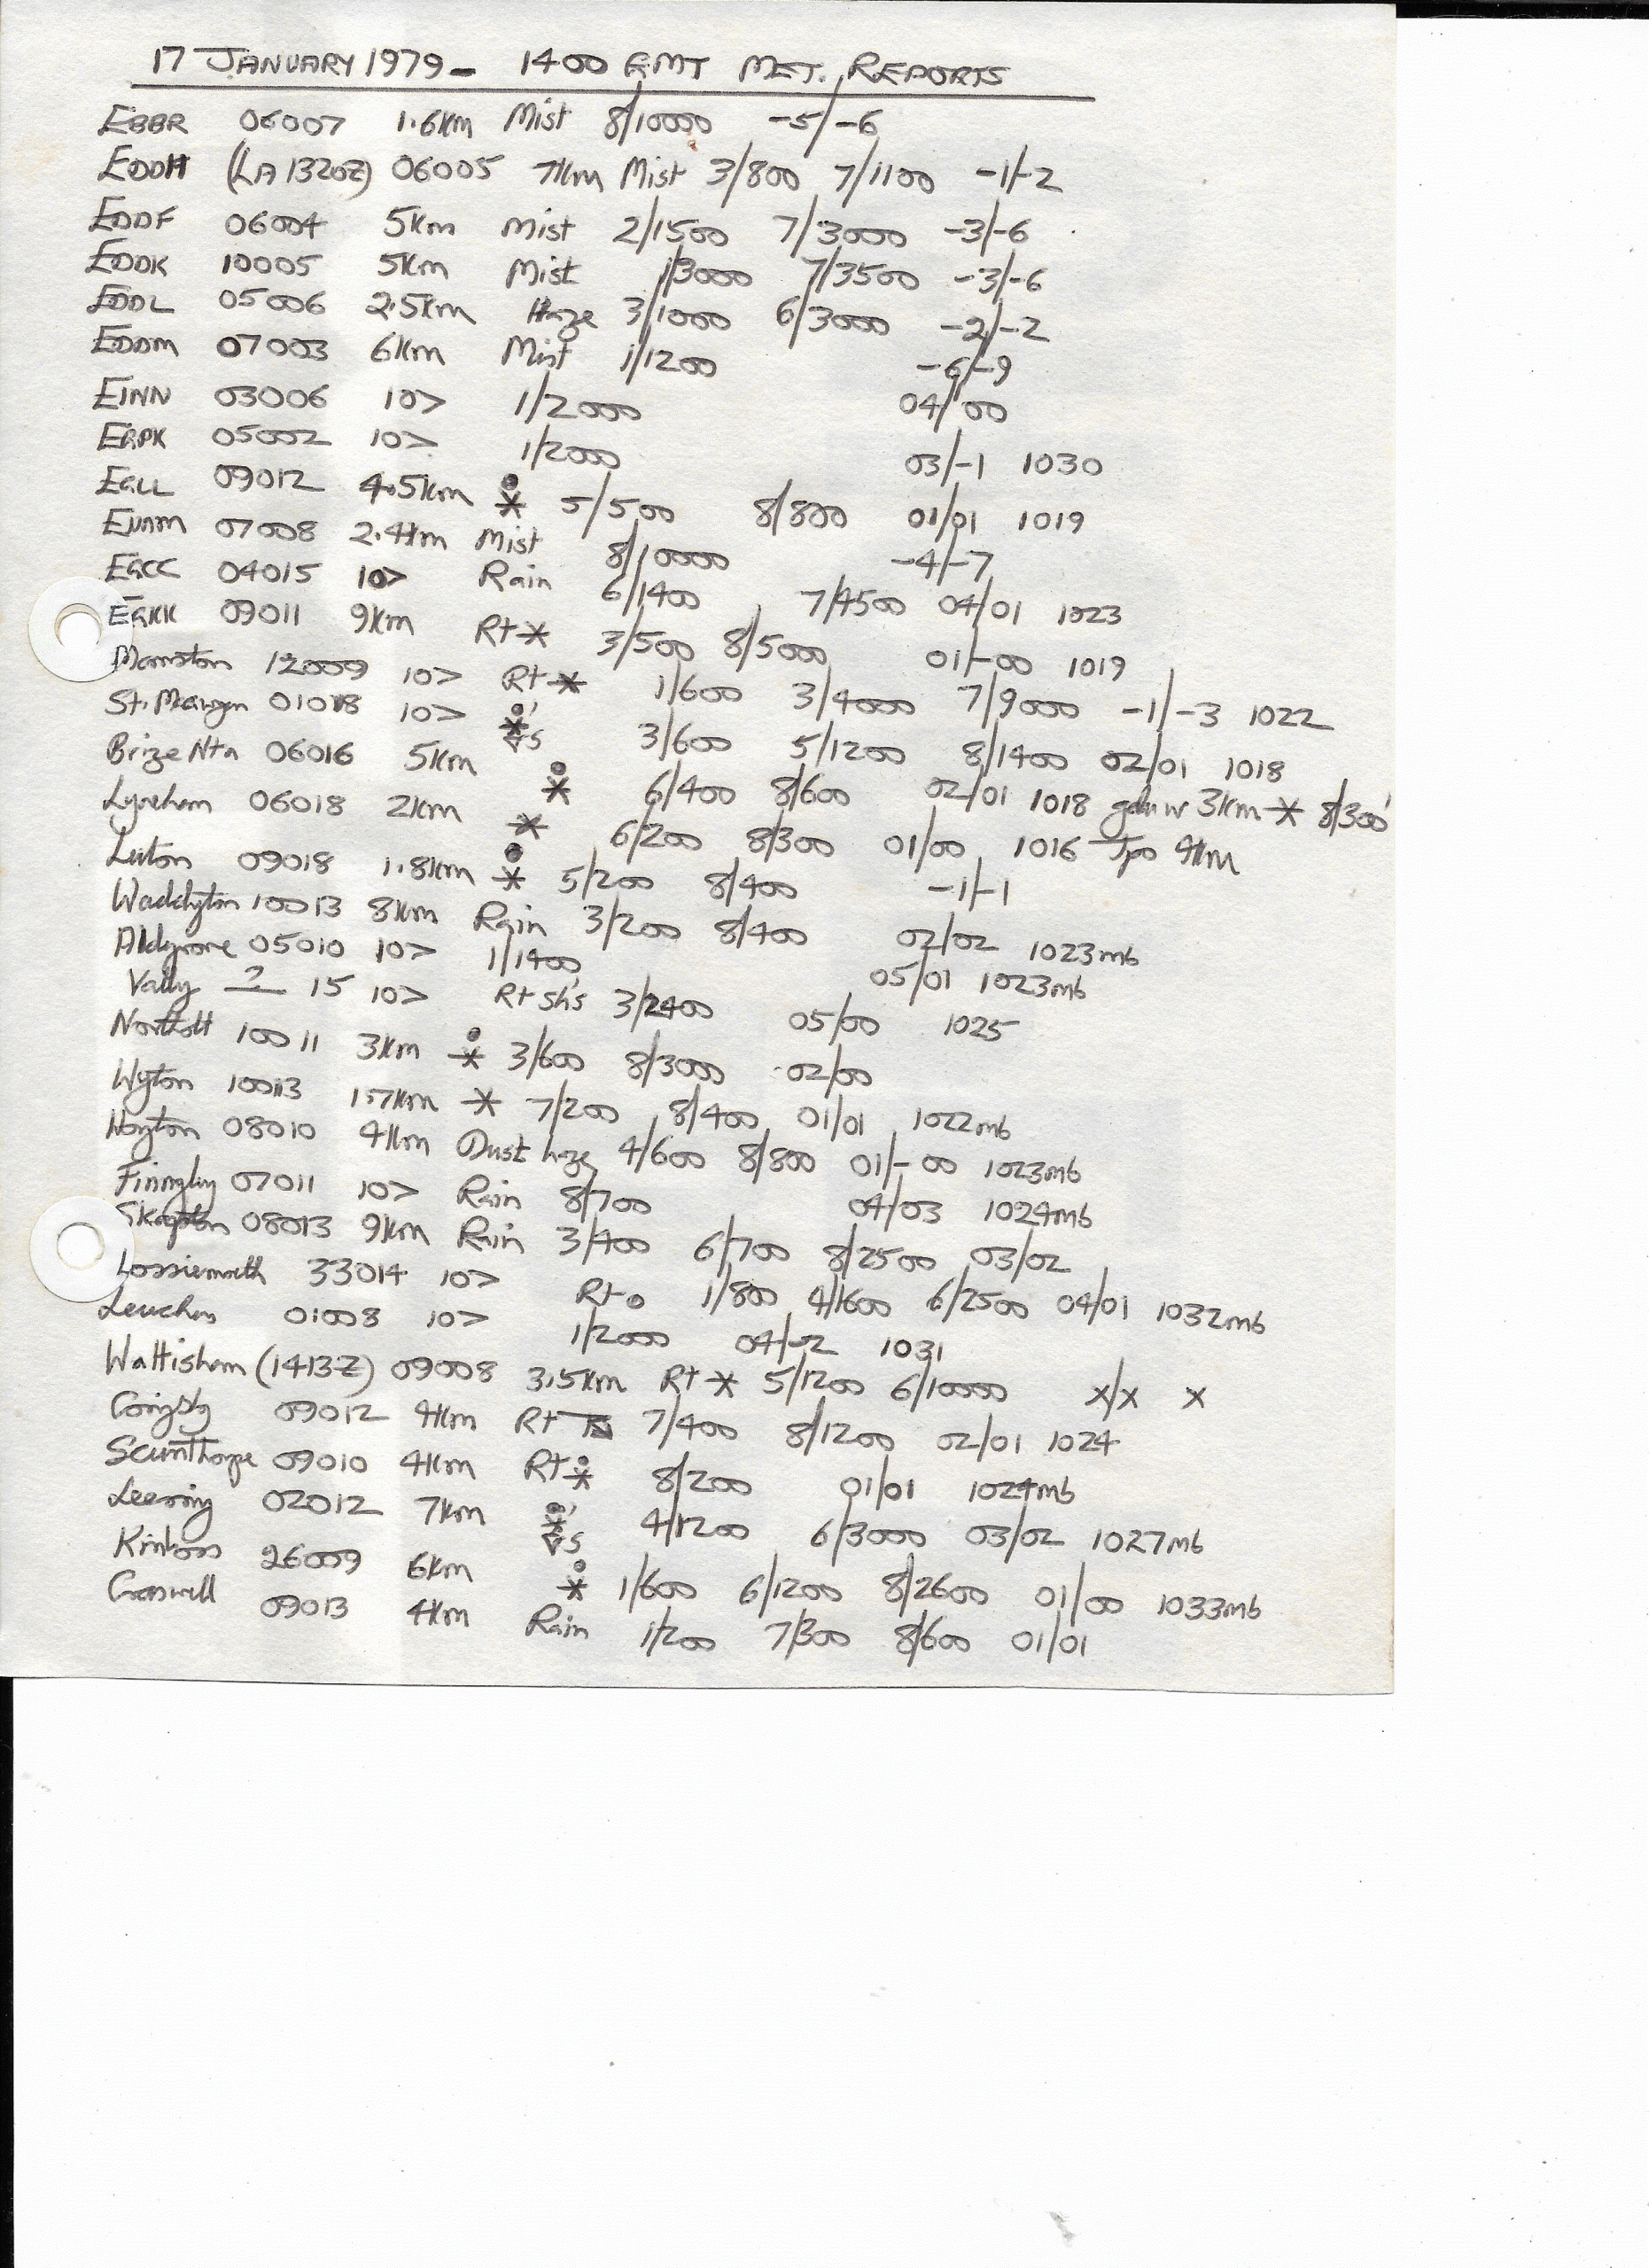 17 JANUARY 1979 - 1400 GMT MET. REPORTS
EBBR 06007 1.6km Mist 8/10000 -5/-6
EDDH (LA 1320Z) 06005 7km Mist 3/800 7/1100 -1/-2
EDDF 06004 5km Mist 2/1500 7/3000 -3/-6
EDDK 10005 5km Mist 1/3000 7/3500 -3/-6
EDDL 05006 2.5km Haze 3/1000 6/3000 -2/-2
EDDM 07003 6km Mist 1/1200 -6/-9
EINN 03006 10> 1/2000 04/00
EGPK 05002 10> 1/2000 03/-1 1030
EGLL 09012 4.5km ● * 5/500 8/800 01/01 1019
07008 2.4km Mist 8/10000 -4/-7
EGCC 04015 10> Rain 6/1400 7/4500 04/01 1023
EGKK 09011 9km Rt * 3/500 8/5000 01/-00 1019
Manston 12009 10> Rt * 1/600 3/4000 7/9000 -1/-3 1022
St. Mawgan 01018 10> ●' * ▽s 3/600 5/1200 8/1400 02/01 1018
Brize Ntn 06016 5km ● * 6/400 8/600 02/01 1018 3km * 8/300'
Lyneham 06018 2km * 6/200 8/300 01/00 1016 Tpo 4km
Luton 09018 1.8km ● * 5/200 8/400 -1/-1
Waddington 10013 8km Rain 3/200 8/400 02/02 1023mb
Aldgrove 05010 10> 1/1400 05/01 1023mb
Valley ? 15 10> Rt sh's 3/2400 05/00 1025
Northolt 10011 3km ● * 3/600 8/3000 02/00
Wyton 10013 1.7km * 7/200 8/400 01/01 1022mb
08010 4km Dust haze 4/600 8/800 01/-00 1023mb
Finngley 07011 10> Rain 8/700 04/03 1024mb
08013 9km Rain 3/400 6/700 8/2500 03/02
Lossiemouth 33014 10> Rt ● 1/800 4/1600 6/2500 04/01 1032mb
Leuchars 01008 10> 1/2000 04/-2 1031
Wattisham (1413Z) 09008 3.5km Rt * 5/1200 6/10000 x/x x
Coningsby 09012 4km Rt 7/400 8/1200 02/01 1024
Scunthorpe 09010 4km Rt ● * 8/200 01/01 1024mb
Leeming 02012 7km ●' * ▽s 4/1200 6/3000 03/02 1027mb
Kinloss 26009 6km ● * 1/600 6/1200 8/2600 01/00 1033mb
Cranwell 09013 4km Rain 1/200 7/300 8/600 01/01